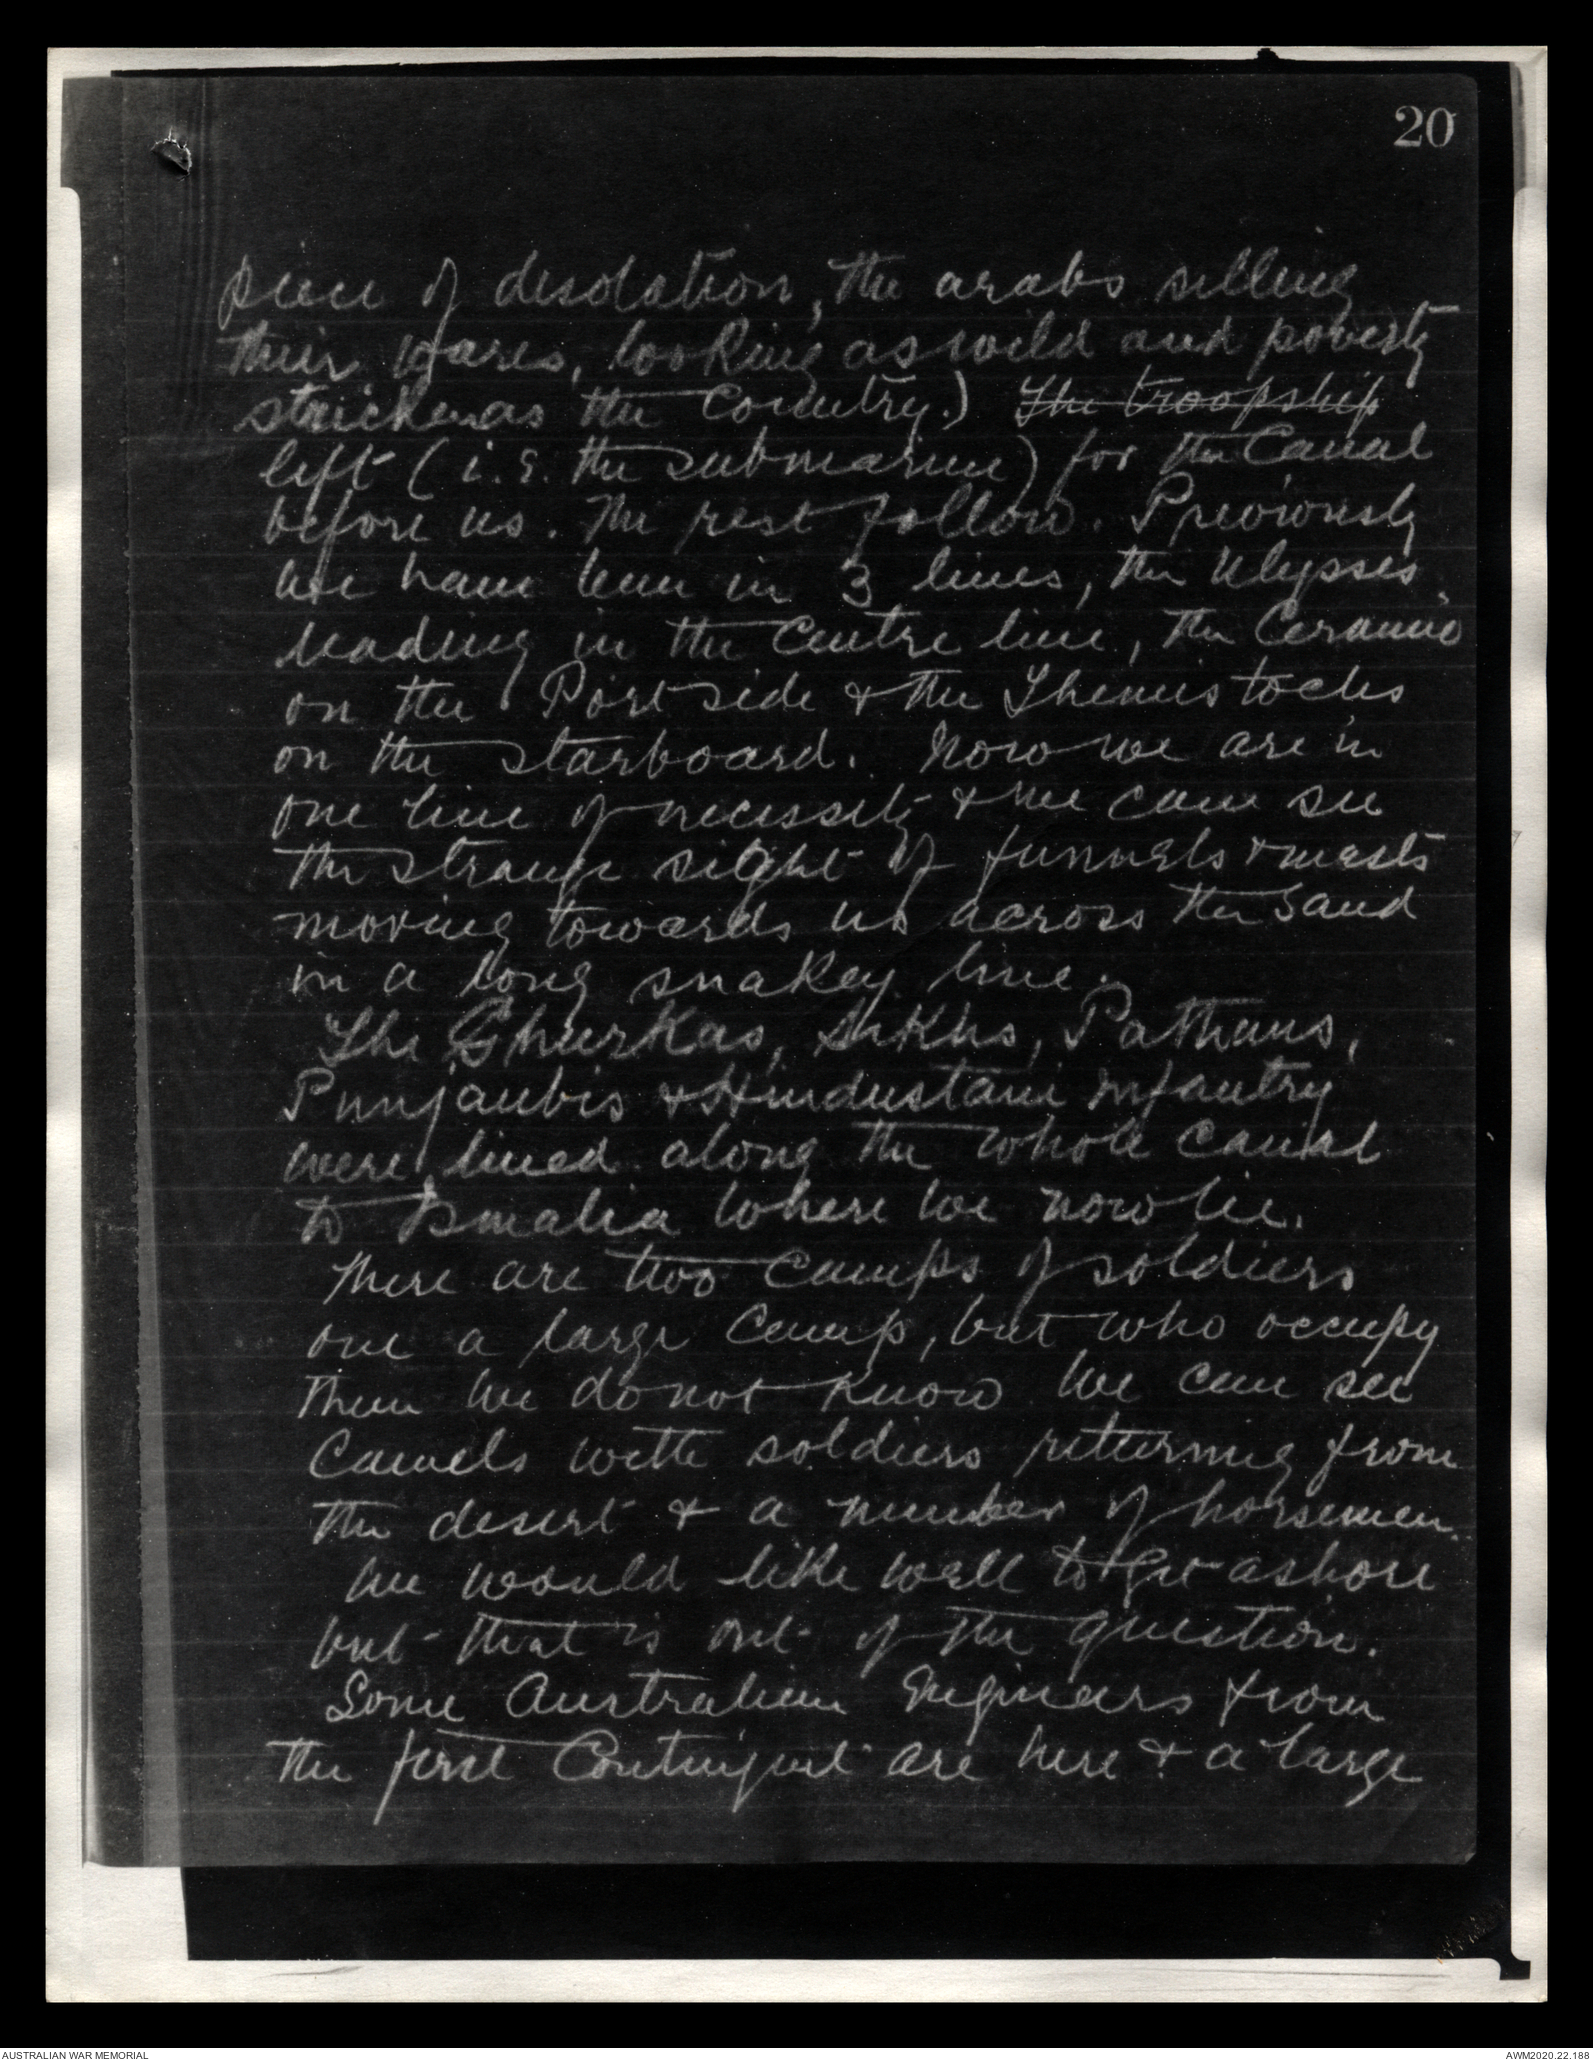 20
piece of desolation, the arabs selling
their wares, looking as wild and poverty
stricken as the Country.) The troopship
left (i.e. the submarine) for the Canal
before us. The rest follow. Previously
we have been in 3 lines, the Ulysses
leading in the Centre line, the Ceramic
on the Port side & the Themistocles
on the starboard. Now we are in
one line of necessity & we can see
the strange sight of funnels & masts
moving towards us across the sand
in a long snakey line.
The Ghurkas, Sikhs, Pathans,
Punjaubis & Hindustani Infantry
were lined along the whole canal
to Ismalia where we now lie.
There are two camps of soldiers
one a large Camp, but who occupy
them we do not know We can see
Camels with soldiers returning from
the desert & a number of horsemen.
We would like well to go ashore
but that is out of the question.
Some Australian Engineers from
the first Contingent are here & a large
AUSTRALIAN WAR MEMORIAL
AWM2020.22.188